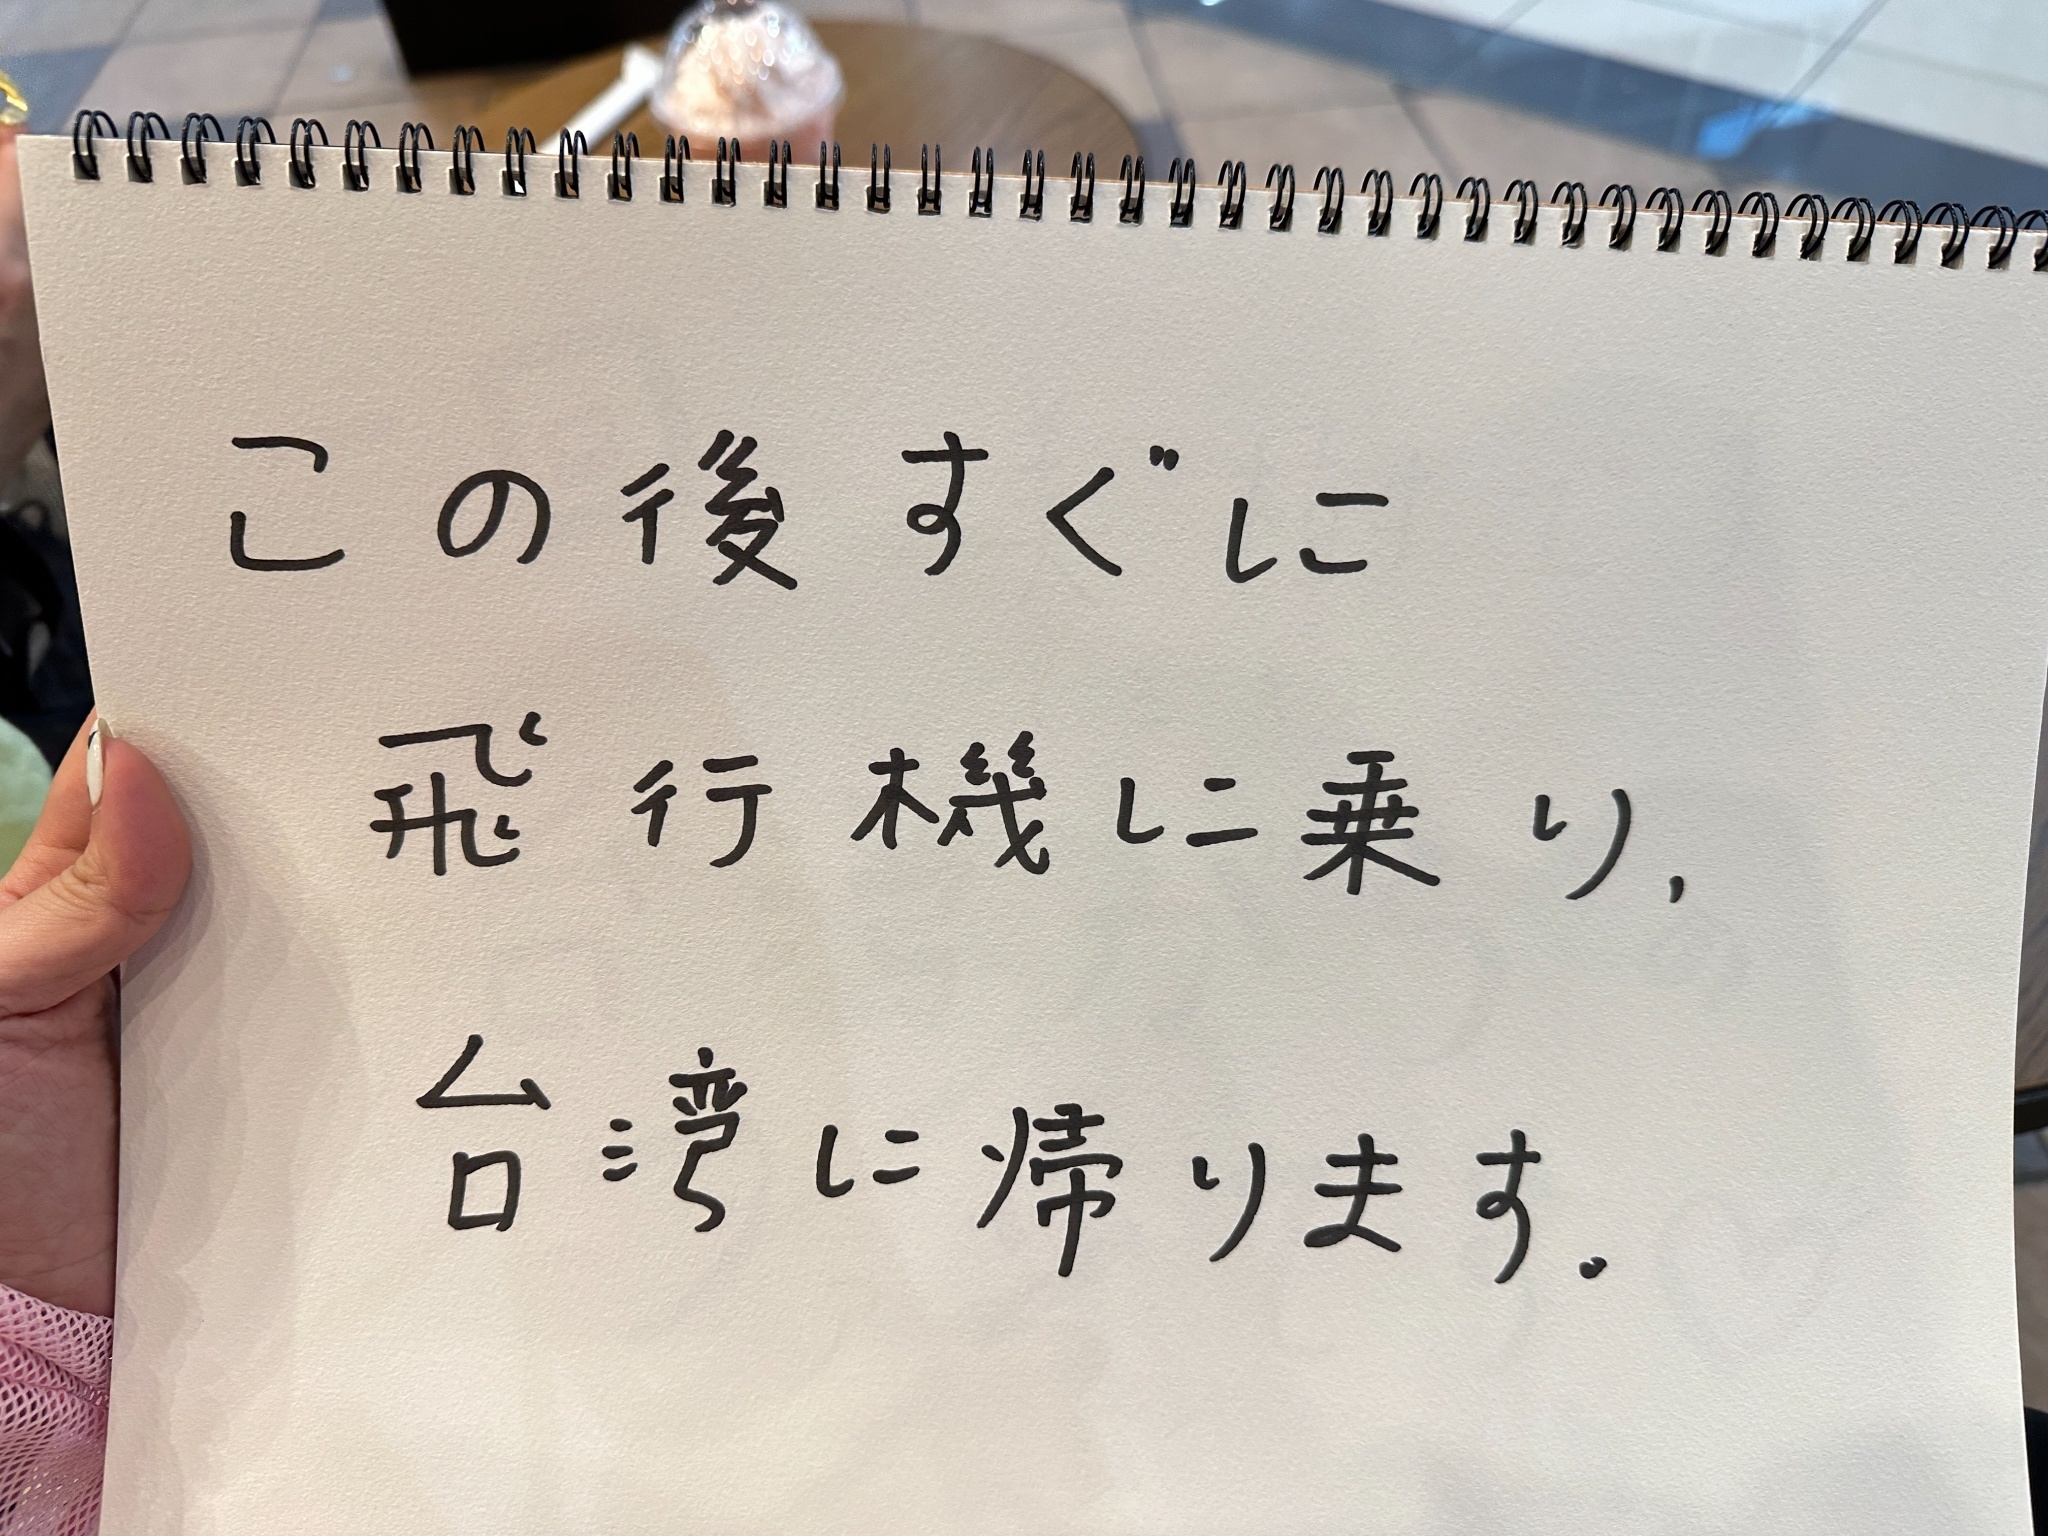 この後すぐに
飛行機に乗り、
台湾に帰ります。